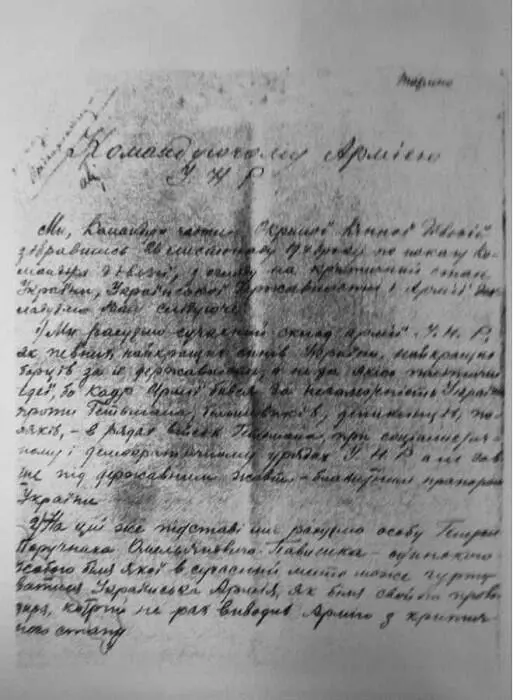 Таємно
Командуючому Армією
У Н Р
Ми, Командири частин Окремої Кінної Дівізії
зібравшись 26 листопаду 19 року по наказу Ко-
мандира Дівізії, з огляду на критичний стан
України, Української Державности і Армії до-
кладуємо Вам слідуюче:
1) Ми рахуємо сучасний склад армії У.Н.Р.
як певних, найкращих синів України, найкращих
борців за її державність, а не за якісь партійні
ідеї, бо кадр Армії бився за незалежність України
проти Гетьмана, большевиків, деникінців, по-
ляків, – в рядах військ Гетьмана, при соціалистич-
ному і демократичному урядах У.Н.Р. але зав-
ше під державним жовто-блакитним прапором
України
2) На цій же підставі ми рахуємо особу Генерал
Поручника Омельяновича-Павленка – одинокою
особою біля якої в сучасний мент може гурту-
ватися Українська Армія, як біля свойого прово-
диря, котрий не раз виводив Армію з критич-
ного стану